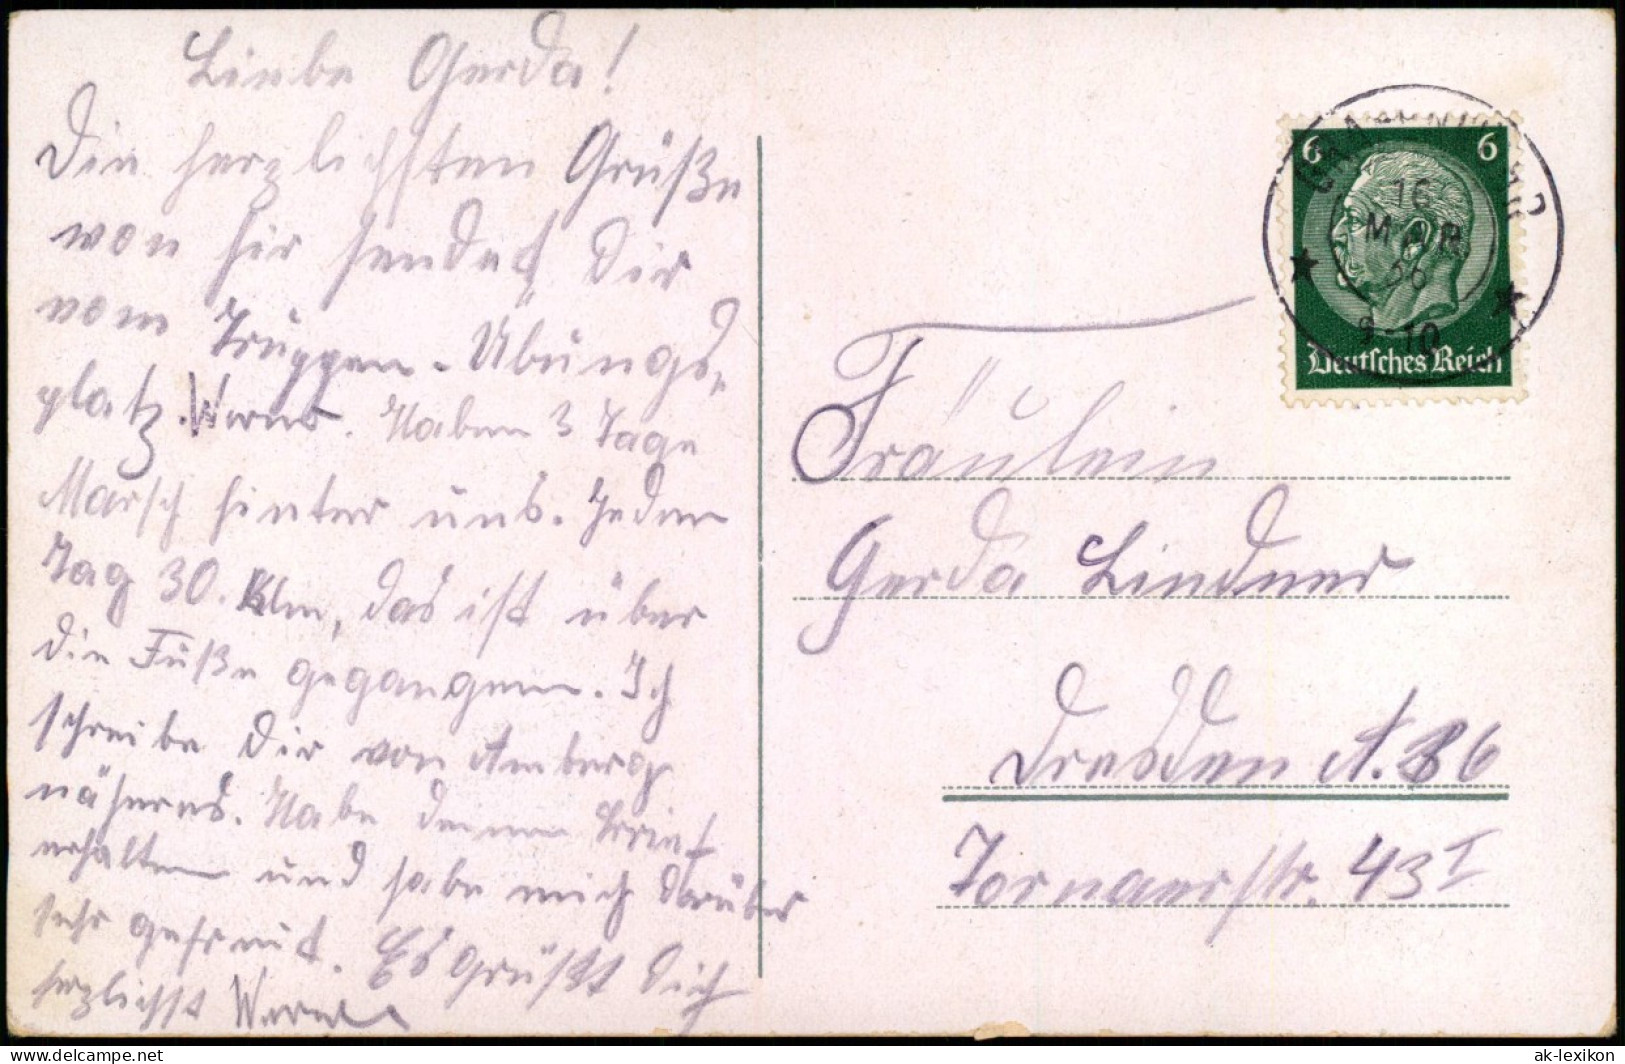 Liebe Gerda!
Die herzlichsten Grüße
von hir sendet Dir
vom Truppen-Übungs-
platz. Werner. Haben 3 Tage
Marsch hinter uns. Jeden
Tag 30. Klm, das ist über
die Füße gegangen. Ich
schreibe Dir von Amberg
näheres. Habe deinen Brief
erhalten und habe mich darüber
sehr gefreut. Es grüßt Dich
herzlichst Werner
6 6
16
MAR
36
9-10
Deutsches Reich
Fräulein
Gerda Lindner
Dresden A. 36
Tornaerstr. 43 I
ak-lexikon
delcampe.net